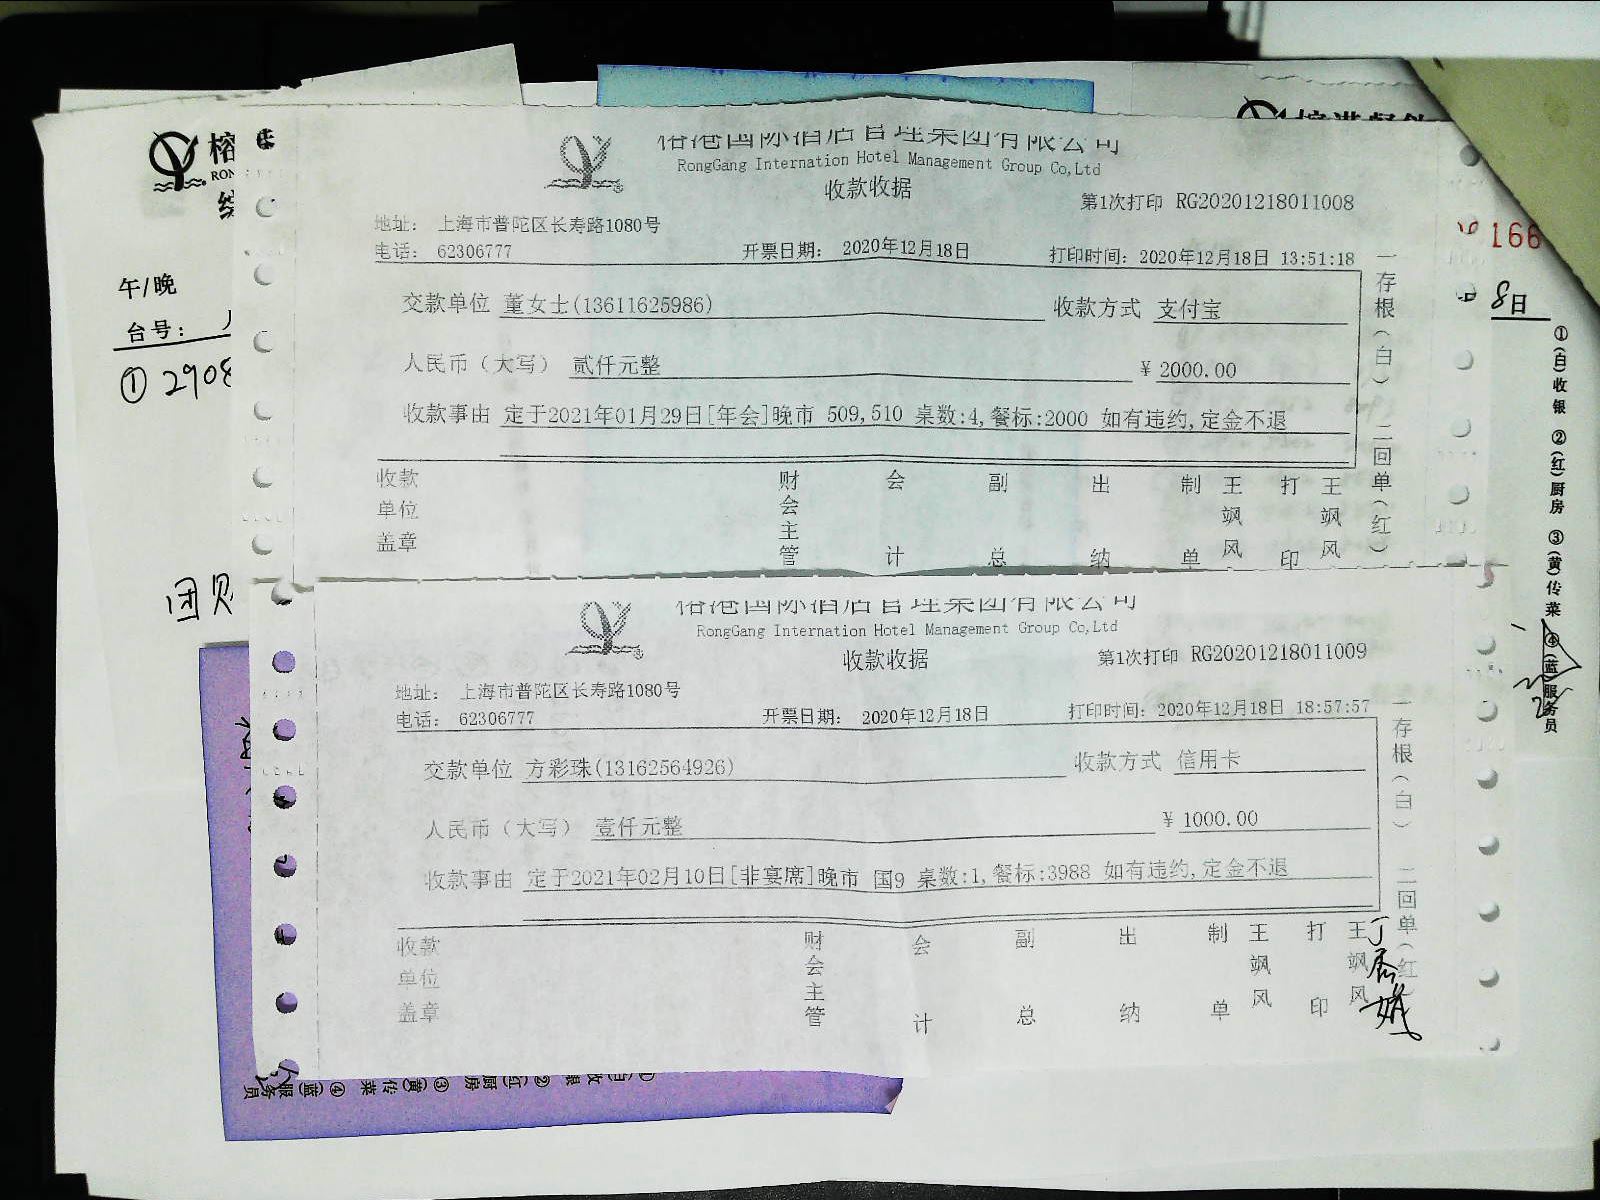 榕港国际酒店管理集团有限公司
RongGang Internation Hotel Management Group Co,Ltd
收款收据
第1次打印 RG20201218011008
地址: 上海市普陀区长寿路1080号
电话: 62306777 开票日期: 2020年12月18日 打印时间: 2020年12月18日 13:51:18
交款单位 董女士(13611625986) 收款方式 支付宝
人民币(大写) 贰仟元整 ¥ 2000.00
收款事由 定于2021年01月29日[年会]晚市 509,510 桌数:4,餐标:2000 如有违约,定金不退
收款单位盖章 财会主管 会计 副总 出纳 制单 王飒风 打印 王飒风
一存根(白) 二回单(红)
榕港国际酒店管理集团有限公司
RongGang Internation Hotel Management Group Co,Ltd
收款收据
第1次打印 RG20201218011009
地址: 上海市普陀区长寿路1080号
电话: 62306777 开票日期: 2020年12月18日 打印时间: 2020年12月18日 18:57:57
交款单位 方彩珠(13162564926) 收款方式 信用卡
人民币(大写) 壹仟元整 ¥ 1000.00
收款事由 定于2021年02月10日[非宴席]晚市 国9 桌数:1,餐标:3988 如有违约,定金不退
收款单位盖章 财会主管 会计 副总 出纳 制单 王飒风 打印 王飒风
一存根(白) 二回单(红)
榕
RON
午/晚
台号:
① 2908
团
166
8日
①(白)收银 ②(红)厨房 ③(黄)传菜 ④(蓝)服务员
②(红)厨房 ③(黄)传菜 ④(蓝)服务员